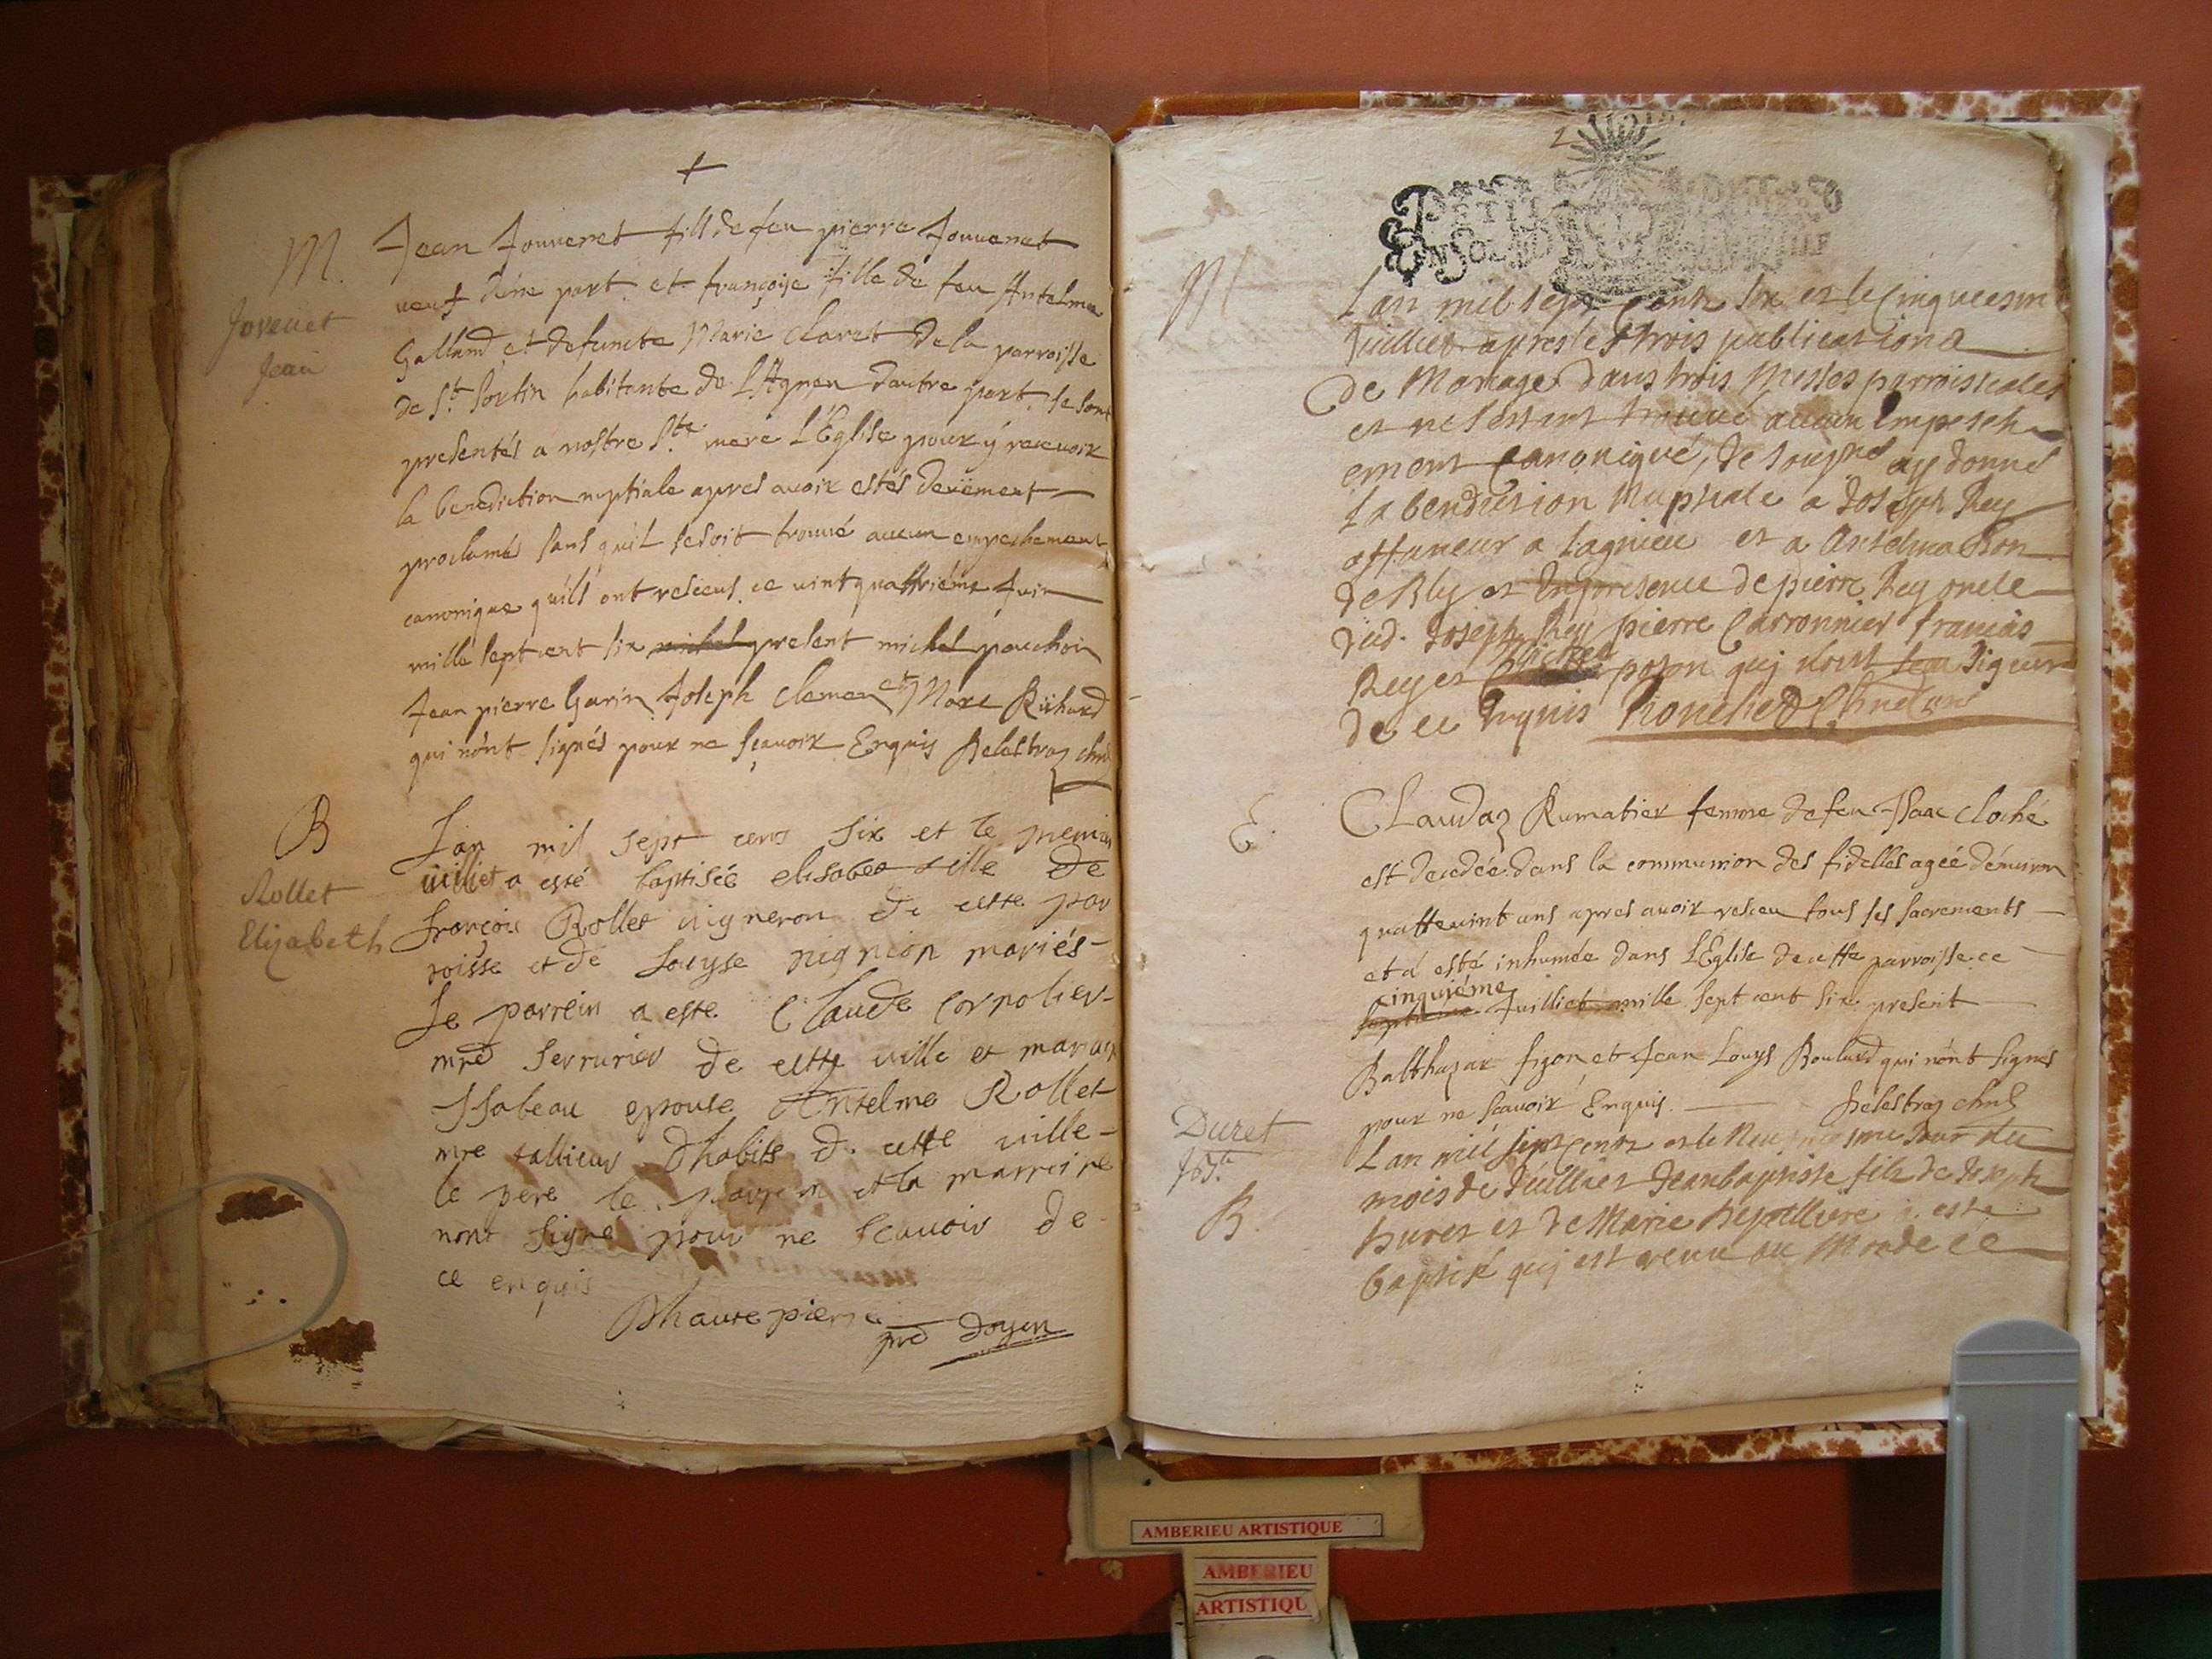 M.
Jovenet
Jean
Jean Jouvenet fill de feu pierre Jouvenet
veuf d'une part et françoise fille de feu Antelme
Galland et defuncte Marie Claret de la parroisse
de St. Sortin habitante de L'Agneu d'autre part, se sont
presentés a nostre Ste. mere L'Églîse pour y recevoir
la benediction nuptiale apres avoir estés deüement
proclamés sans qu'il se soit trouvé aucun empeschement
canonique qu'ils ont resceus ce vint quattriéme Juin
mille sept cent six michel present michel pauchoin
Jean pierre Garin Joseph Clemen et Marc Richard
qui n'ont signés pour ne sçavoir Enquis Delestraz
B
Rollet
Elizabeth
Lan mil sept cens six et le premier
iuillet a esté baptisée elisabet fille de
françois Rollet vigneron de cette par
roisse et de Louyse mariés
Le parrein a este Claude Corpolier
mre serrurier de cette ville et
Isabeau epouse Antelme Rollet
mre tallieur d'habits de cette ville
le pere le parrein et la marreine
nont signé pour ne scavoir de
ce enquis
Dhautepierre
pre doyen
M
Lan mil sept cents six et le cinquiesm
Juilliet apres les trois publications
de Mariage dans trois Messes parroissiales
et ne sestant trouvé aucun Empesch
ement canonique, Je sousné ay donné
La bendiction Nuptiale a Joseph Rey
affaneur a Lagnieu et a Antelma Bon
de Bly et En presence de pierre Rey oncle
dud. Joseph Rey pierre Carronnier francois
Rey et poson quj n'ont sceu signer
de ce Enquis
E.
CLaudaz Rumatier femme de feu Isaac cloché
est decedée dans la communion des fidelles agée d'environ
quattevint ans apres avoir resceu tous ses sacrements
et a esté inhumée dans L'Église de cette parroisse ce
cinquiéme
Juilliet mille sept cent six present
Balthazar fizon et Jean Louys Boulard qui n'ont signés
pour ne scavoir Enquis. Delestraz
Duret
B.
Lan mil sept cents et le Neufviesme Jour du
mois de Juilliet Jeanbaptiste filz de Joseph
Duret et de Marie a esté
baptisé quj est venu au Monde ce
AMBERIEU ARTISTIQUE
AMBERIEU
ARTISTIQU